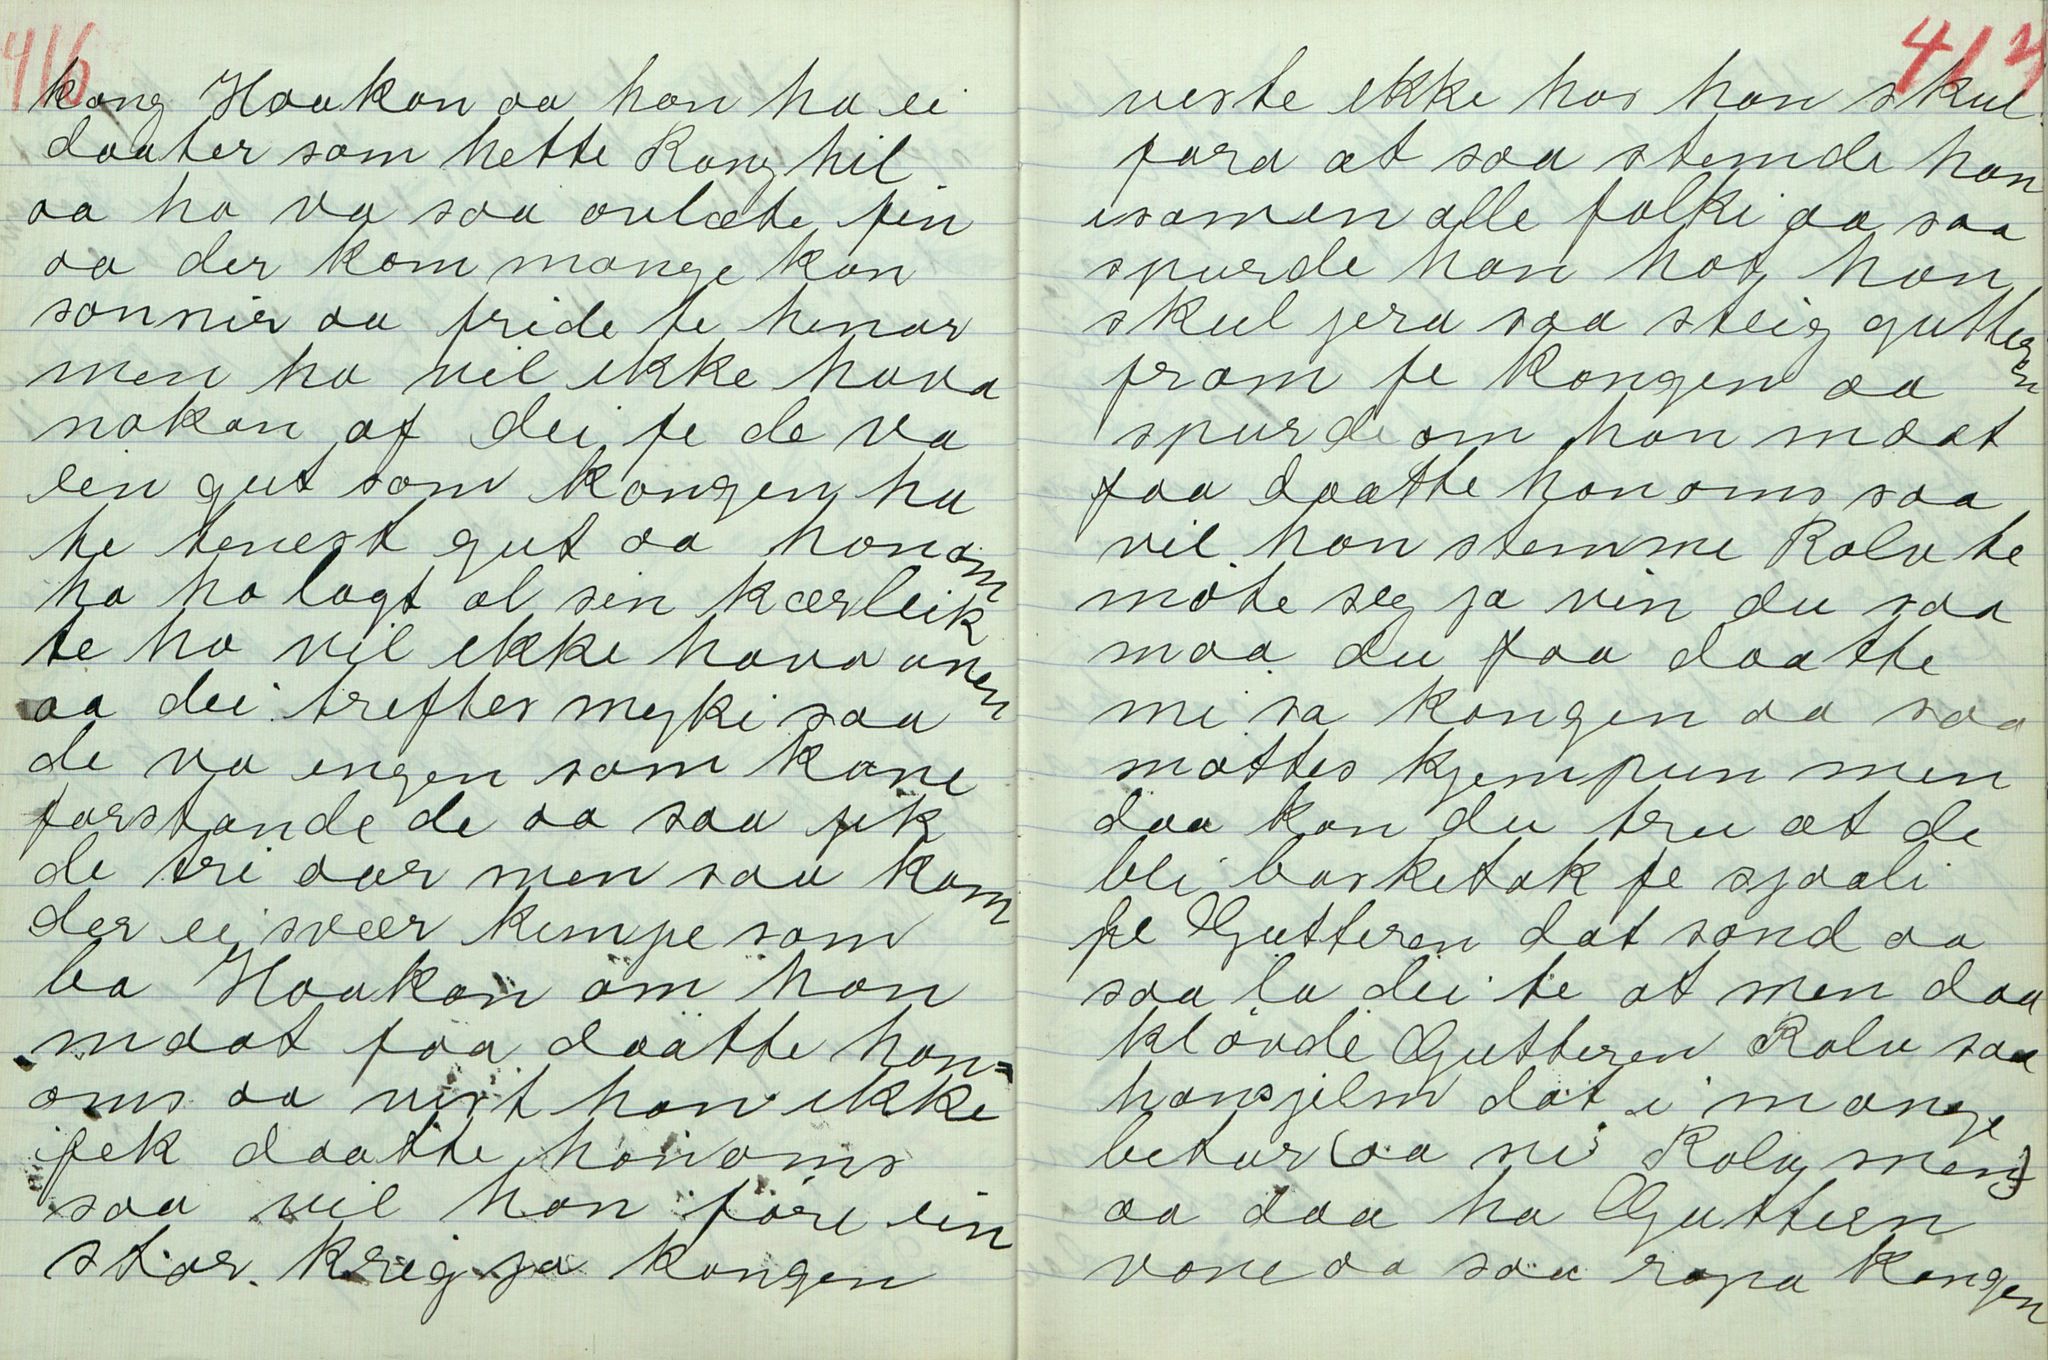 416
kong Haakon aa han ha ei
daater som hette Rong hil
aa ho va saa ovlæte fin
aa der kom mange kon
sønnir aa fride te henar
men ho vil ikke hava
nokon af dei fe de va
ein gut som kongen ha
te tenest gut aa honom
ho ha lagt al sin kærleik
te ho vil ikke hava anen
aa dei treftes myki saa
de va engen som kone
forstande de aa saa jik
de tri aar men saa kom
der ei svær kempe som
ba Haakon om han
maat faa daatte hon=
oms aa vist han ikke
fek daatte honoms
saa vil han føre ein
stor krig ja kongen
417
veste ikke hos han skul
fara at saa stemde han
isamen alle folki aa saa
spurde han hot han
skul jera saa steig gutteren
fram fe kongen aa
spurde om han maat
faa daatte honoms saa
vil han stemme Rolv te
møte seg ja vin du saa
maa du faa daatte
mi sa kongen aa saa
møttes kjempun men
daa kan du tru at de
blei basketak fe sjaali
fe Gutteren dat sønd aa
saa la dei te at men daa
kløvde Gutteren Rolv saa
hansjelm dat i mange
betar (aa ni Rolv men)
aa daa ha Guttern
vone aa saa ropa kongen